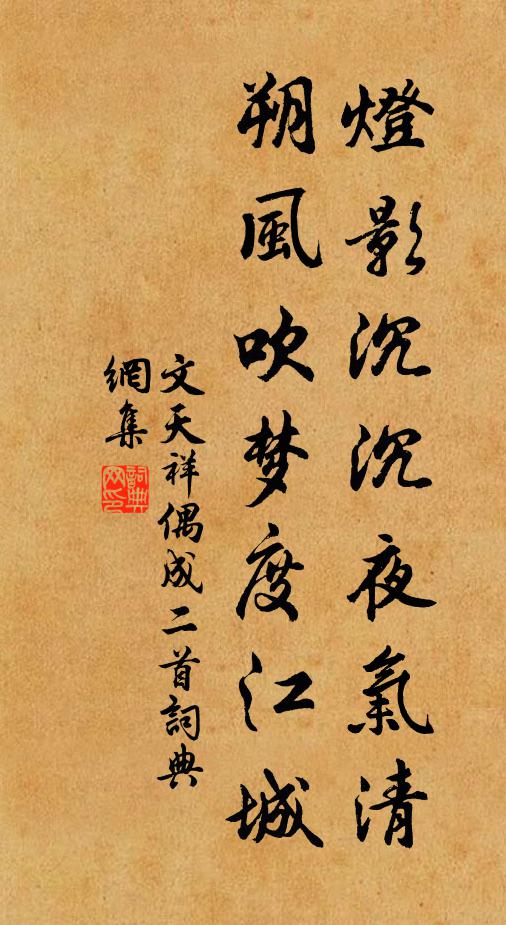 燈影沉沉夜氣清
朔風吹梦度江城
文天祥偶成二首詞典
網集
詞典
网印